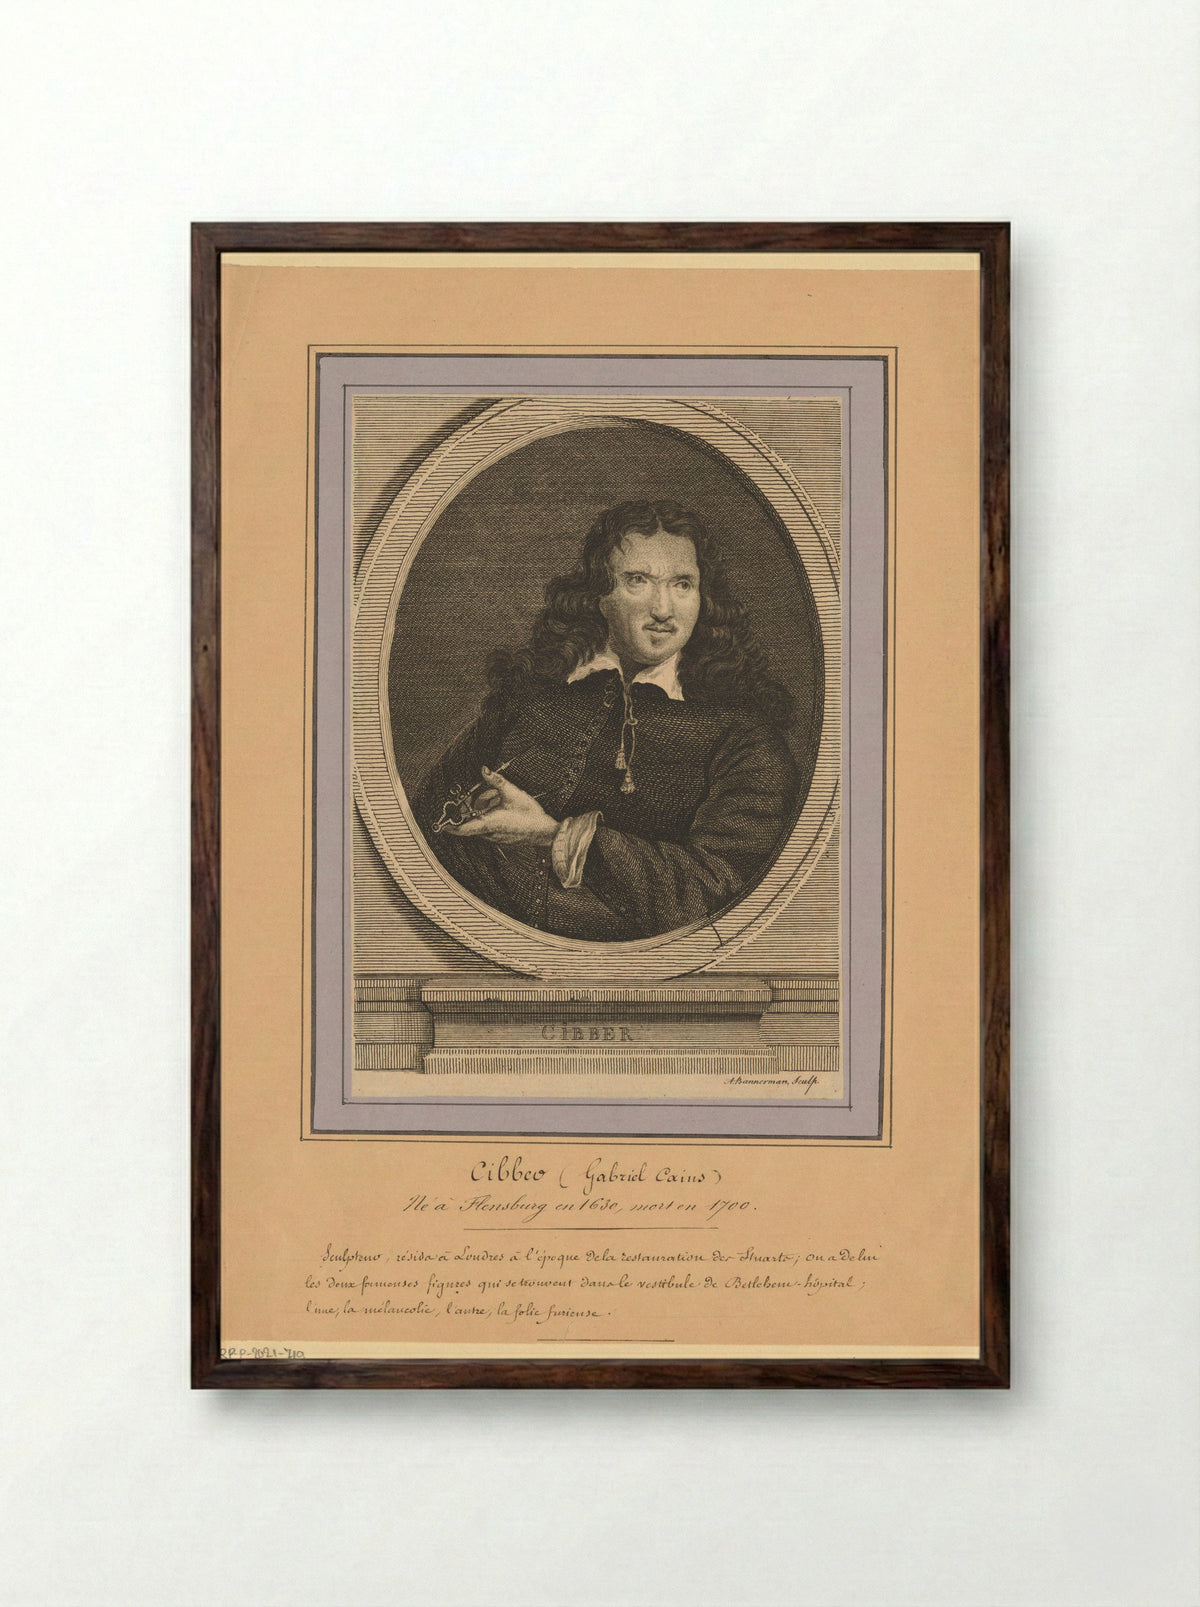 CIBBER
A. Bannerman, Sculp.
Cibber (Gabriel Caius)
Né à Flensburg en 1630, mort en 1700.
Sculpteur, résida à Londres à l'époque de la restauration des Stuarts; on a de lui
les deux fameuses figures qui se trouvent dans le vestibule de Betlehem-hôpital;
l'une, la mélancolie, l'autre, la folie furieuse.
RP-P-2021-710